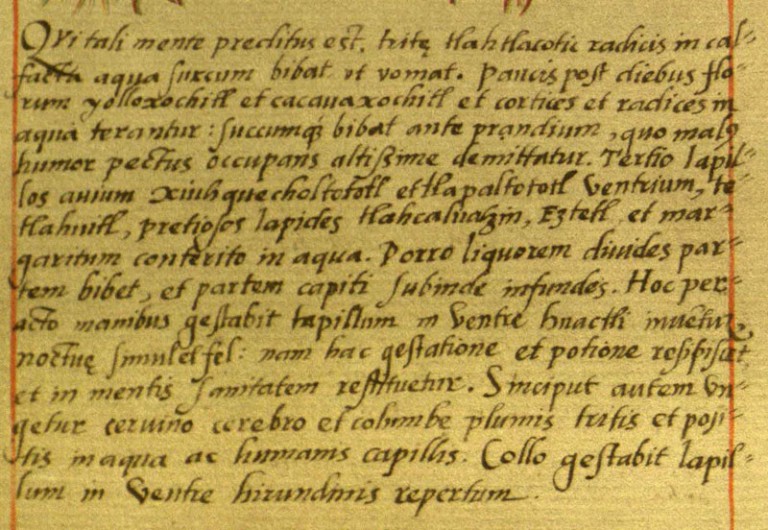 Qui tali mente preditus est, tritę tlahtlacotic radicis in cal=
facta aqua surcum bibat ut vomat. Paucis post diebus flo=
rum yolloxochitl et cacauaxochitl et cortices et radices in
aqua terantur: succumq; bibat ante prandium, quo malꝰ
humor pectus occupans altissime demittatur. Tertio lapil=
los auium xiuhquecholtototl et tlapaltototl ventrium, te=
tlahuitl, pretiosos lapides tlahcalhuatzin, Eztetl, et mar=
garitum conterito in aqua. Porro liquorem diuides par=
tem bibet, et partem capiti subinde infundes. Hoc per=
acto manibus gestabit lapillum in ventre huactli inuẽtũ,
noctuę simul et fel: nam hac gestatione et potione resipiscet
et in mentis sanitatem restituetur. Sinciput autem un=
getur ceruino cerebro et columbe plumis tritis et posi=
tis in aqua ac humanis capillis. Collo gestabit lapil=
lum in ventre hirundinis repertum.